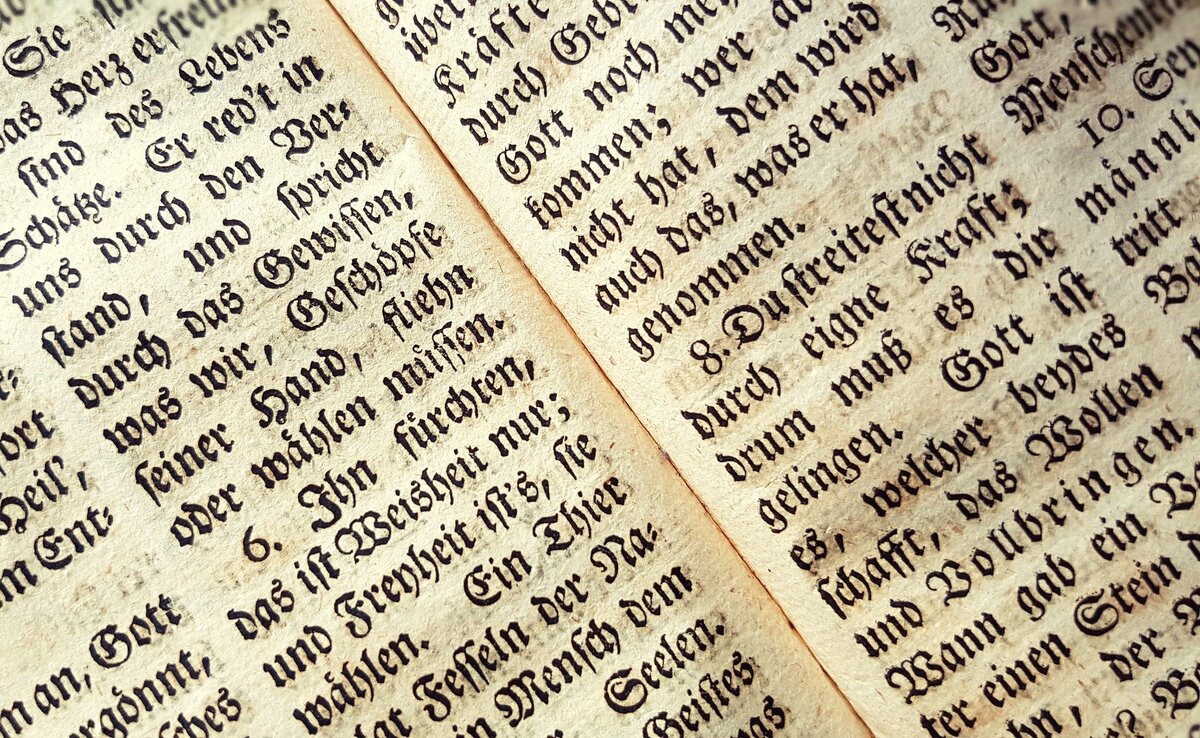 Heil',
Ent⸗
an, Gott
Sie
das Herz
sind des Lebens
Schätze. Er red't in
uns durch den Ver⸗
stand, und spricht
durch das Gewissen,
was wir, Geschöpfe
seiner Hand, fliehn
oder wählen müssen.
6. Ihn fürchten,
das ist Weisheit nur;
und Freyheit ist's, sie
wählen. Ein Thier
Fesseln der Na⸗
Mensch dem
Seelen.
Geistes
Kräfte
durch
Gott noch
kommen; wer
nicht hat, dem wird
auch das, was er hat,
genommen.
8. Du streitest nicht
durch eigne Kraft;
drum muß es dir
gelingen. Gott ist
es, welcher beydes
schafft, das Wollen
und Vollbringen.
Wann gab ein
ter einen Stein
der
Gott,
10.
männli
tritt